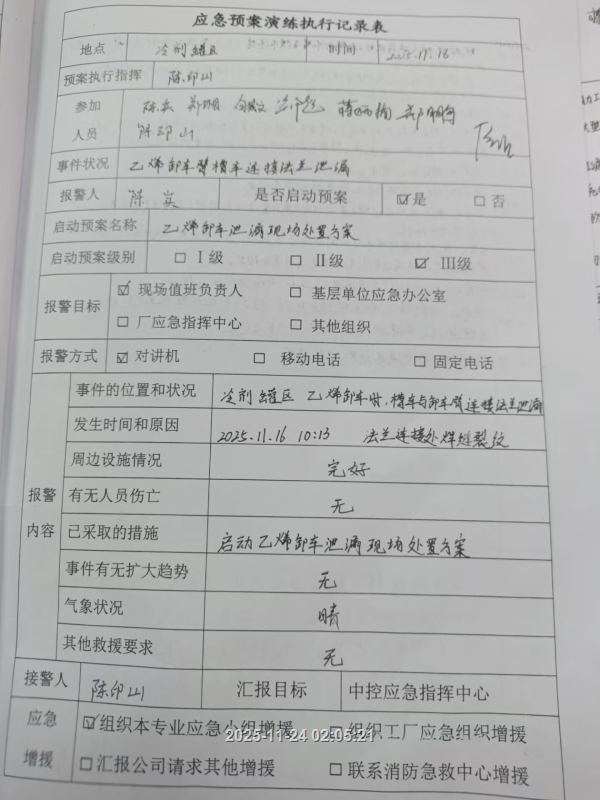 应急预案演练执行记录表
地点 冷剂罐区 时间 2025.11.16
预案执行指挥 陈印山
参加人员 陈实
陈印山
事件状况 乙烯卸车臂槽车连接法兰泄漏
报警人 陈实 是否启动预案 ☑是 □否
启动预案名称 乙烯卸车泄漏现场处置方案
启动预案级别 □ Ⅰ级 □ Ⅱ级 ☑ Ⅲ级
报警目标 ☑ 现场值班负责人 □ 基层单位应急办公室
□ 厂应急指挥中心 □ 其他组织
报警方式 ☑ 对讲机 □ 移动电话 □ 固定电话
报警内容
事件的位置和状况 冷剂罐区 乙烯卸车时,槽车与卸车臂连接法兰泄漏
发生时间和原因 2025.11.16 10:13 法兰连接处焊缝裂纹
周边设施情况 完好
有无人员伤亡 无
已采取的措施 启动乙烯卸车泄漏现场处置方案
事件有无扩大趋势 无
气象状况 晴
其他救援要求 无
接警人 陈印山 汇报目标 中控应急指挥中心
应急增援 ☑组织本专业应急小组增援 □组织工厂应急组织增援
□汇报公司请求其他增援 □联系消防急救中心增援
2025-11-24 02:05:21